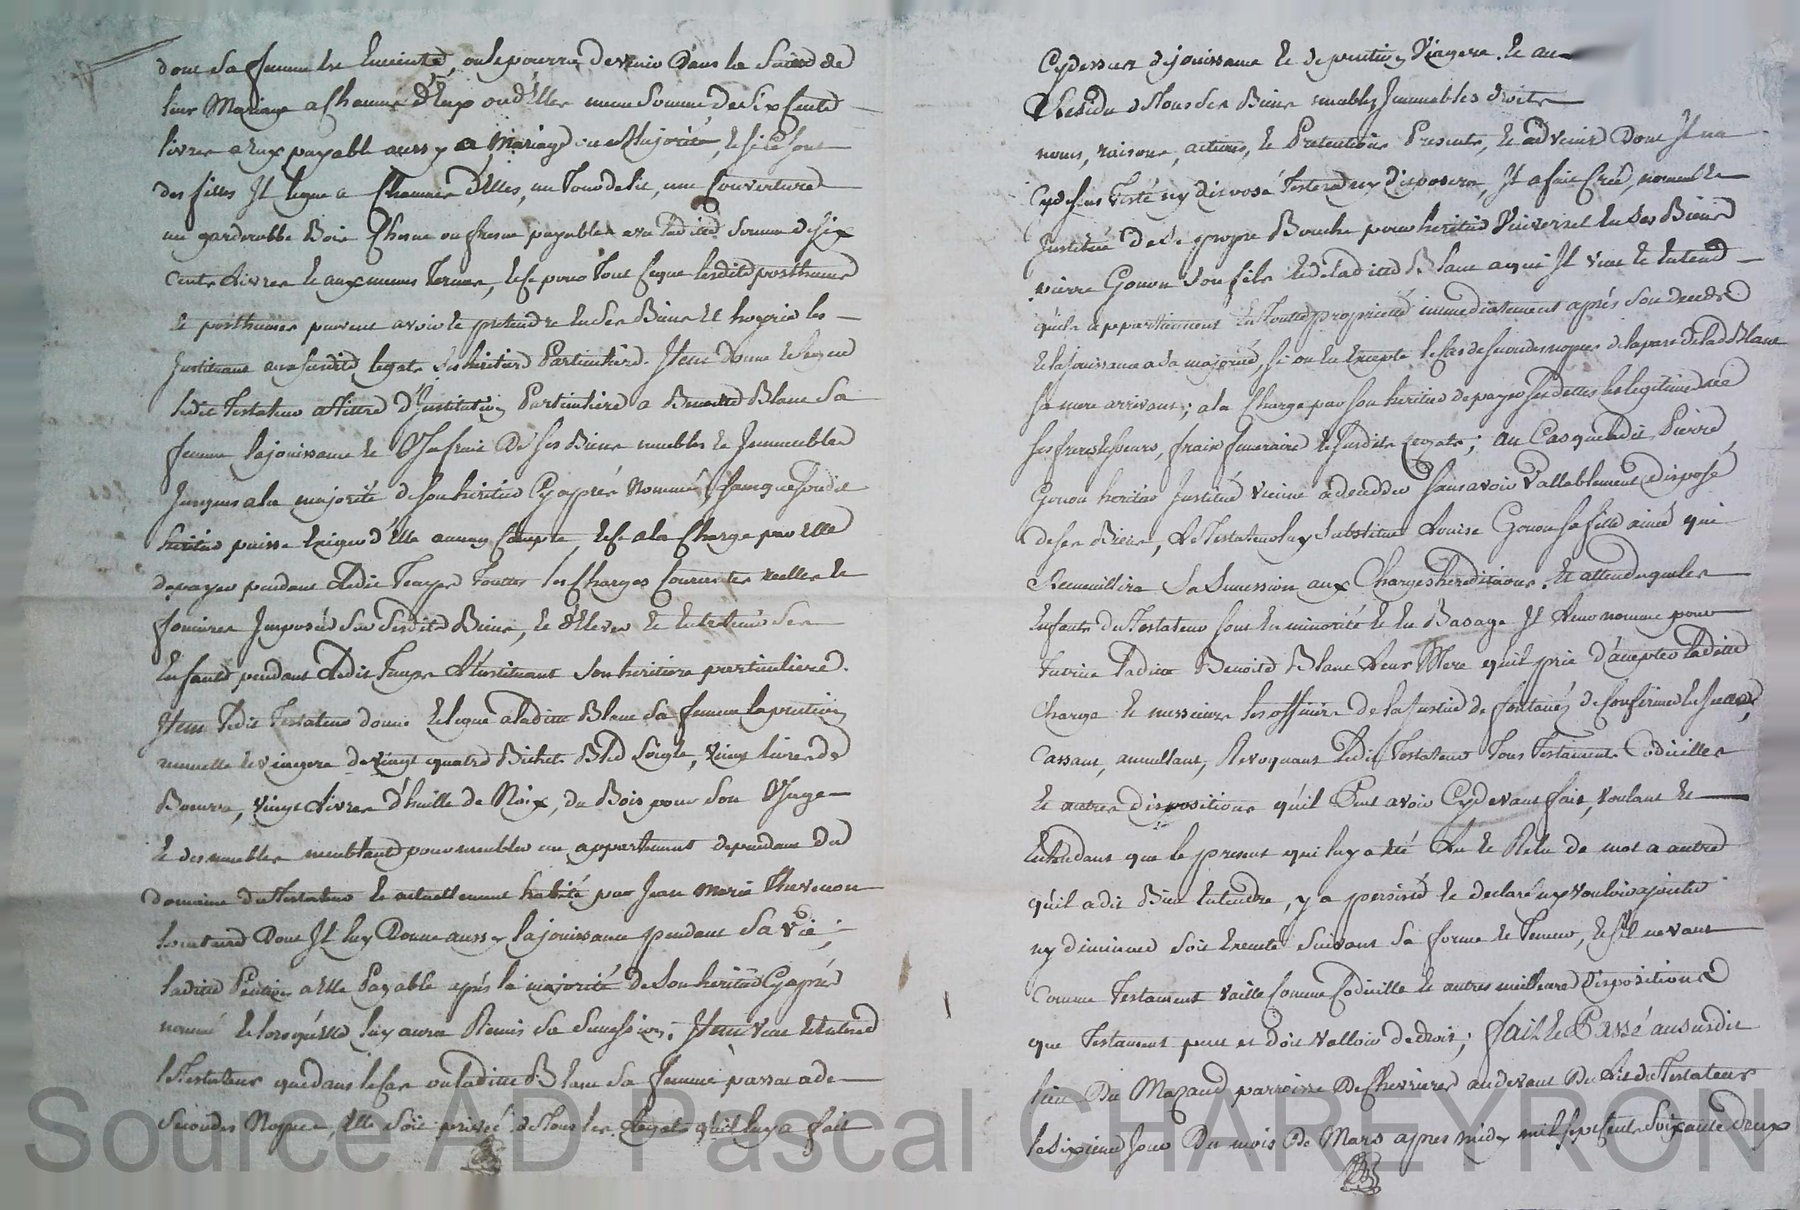 dont sa femme est Enceinte, ou le pourra devenir dans la suitte de
leur Mariage a Chaccun d'Eux ou d'Elles meme Somme de Six Cents
livres a Eux payable aussy a Mariage ou a Majorité, et si ce sont
des filles Il legue a Chaccune d'Elles, un Tour de lit, une Couverture
un garderobbe Bois Chesne ou fresne payables avec laditte Somme de Six
Cents Livres et aux memes Termes, et ce pour Tout ce que lesdits posthumes
et posthumes peuvent avoir et pretendre en ses Biens et hoyrie les
Instituant aux susdits legats ses heritiers Particuliers. Item donne et legue
ledit Testateur a tittre d'Institution Particuliere a Benoitte Blanc Sa
femme la jouissance et Usufruit De ses Biens meubles et Immeubles
Jusques a la majorité de son heritier Cy après Nommé, sans que sondit
heritier puisse Exiger d'Elle aucun Compte, et ce a la Charge par Elle
de payer pendant Ledit Temps Touttes les Charges Courantes reelles et
foncieres Imposées sur Sesdits Biens, et d'Elever et Entretenir Ses
Enfants pendant Ledit Temps L'Instituant Son heritiere particuliere.
Item Ledit Testateur donne et legue a laditte Blanc Sa femme la pention
annuelle et viagere de vingt quatre Bichets Bled Seigle, vingt livres de
Beurre, vingt Livres d'huille de Noix, du Bois pour Son Usage
et des meubles meublants pour meubler un appartement dependant du
domaine du Testateur et actuellement habité par Jean Marie Thevenon
locataire Dont Il luy Donne aussy la jouissance pendant Sa Vie;
laditte Pention a Elle Payable après la majorité de Son heritier Cy après
nommé et lorsqu'Elle luy aura Remis Sa Succession. Item veut et Entend
le Testateur que dans le Cas ou laditte Blanc Sa femme passat a de
Secondes Nopces, Elle soit privée de Tous les Legats qu'il luy a fait
Cy dessus de jouissance et de pention Viagere. Et au
Residu de Tous Ses Biens meubles Immeubles droits
noms, raisons, actions, et Pretentions Presents, et advenir Dont Il n'a
Cy dessus Testé ny disposé Testera ny Disposera, Il a fait Créé, nommé et
Institué de Sa propre Bouche pour heritier Universel En Ses Biens
pierre Gonon Son fils et de laditte Blanc a qui Il veut et Entend
qu'ils appartiennent En Toute propriété immediatement après Son decedz
et la Jouissance a Sa majorité, si on En Excepte le Cas de Secondes nopces de la part de lad. Blanc
Sa mere arrivant; a la Charge par Son heritier de payer Ses Dettes les legitimes de
Ses freres et Soeurs, frais funeraires et Susdits Legats; au Cas que ledit Pierre
Gonon heritier Institué vienne a decedder Sans avoir Vallablement disposé
de Ses Biens, Le Testateur luy Substitue Louise Gonon Sa fille ainée qui
Recueuillira Sa Succession aux Charges hereditaires. Et attendu que les
Enfants du Testateur Sont En minorité et En Bas age Il Leur nomme pour
Tutrice Laditte Benoitte Blanc Leur Mere qu'il prie d'accepter laditte
Charge et messieurs les officiers de la Justice de fontanès de Confirmer le Susdit,
Cassant, annullant, Revoquant Ledit Testateur Tous Testaments Codicilles
et autres dispositions qu'il Peut avoir Cy devant fait, voulant et
Entendant que le present qui luy a été Lu et Relu de mot a autre
qu'il a dit Bien Entendre, y a persisté et declaré n'y vouloir ajouter
ny diminuer soit Executé Suivant Sa forme et Teneur, et S'Il ne vaut
Comme Testament vaille Comme Codicille et autres meilleures Dispositions
que Testament peut et doit valloir de droit; fait et Passé au susdit
lieu Du Mazaud parroisse De Chevrieres au devant Du Lit du Testateur
le Sixieme Jour Du mois De Mars apres midy mil Sept Cents Soixante deux
Source AD Pascal CHAREYRON